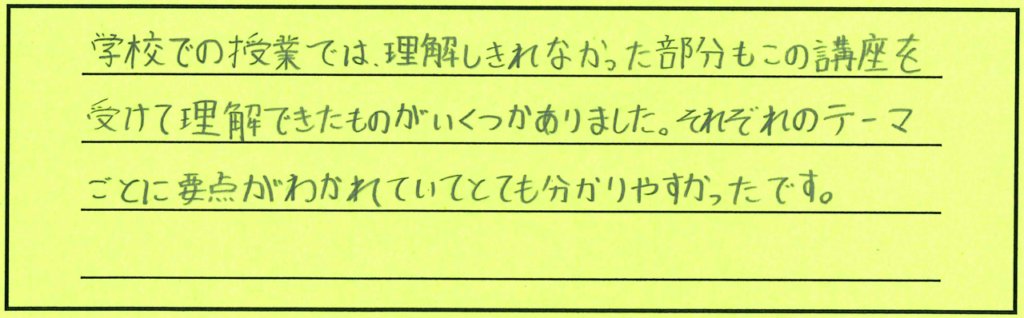 学校での授業では、理解しきれなかった部分もこの講座を
受けて理解できたものがいくつかありました。それぞれのテーマ
ごとに要点がわかれていてとても分かりやすかったです。